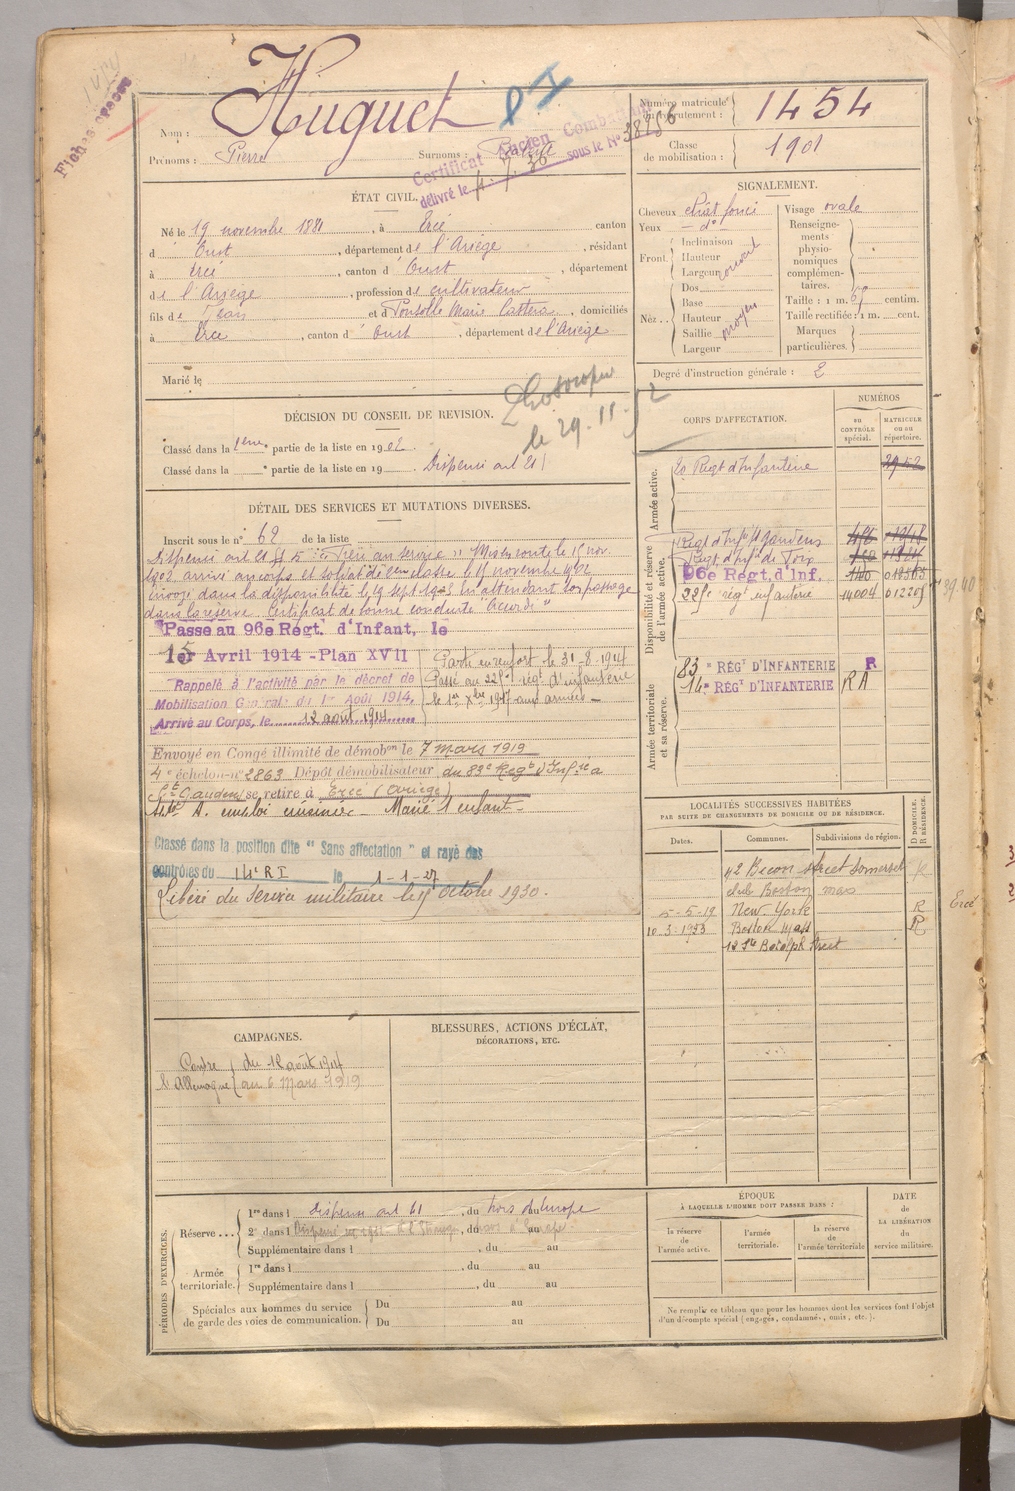 Huguet
Nom :
Prénoms : Pierre
Surnoms :
Certificat Ancien Combattant
délivré le 4. 7. 36 sous le N° 38156
Fiches
Numéro matricule du recrutement : 1454
Classe de mobilisation : 1901
ÉTAT CIVIL.
Né le 19 novembre 1881, à Ercé canton
d Oust, département de l'Ariège, résidant
à Ercé, canton d Oust, département
de l'Ariège, profession de cultivateur
fils de Jean et d Ponsolle Marie, domiciliés
à Ercé, canton d Oust, département de l'Ariège
Marié le
SIGNALEMENT.
Cheveux chât foncé
Yeux — do —
Front. Inclinaison
Hauteur
Largeur couvert
Nez. Dos
Base
Hauteur
Saillie moyen
Largeur
Visage ovale
Renseignements physionomiques complémentaires.
Taille : 1 m. centim.
Taille rectifiée : 1 m. cent.
Marques particulières.
Degré d'instruction générale : 2
DÉCISION DU CONSEIL DE REVISION.
Classé dans la 1ère partie de la liste en 1902.
Classé dans la partie de la liste en 19 Dispensé art 21
le 29. 11. 52
DÉTAIL DES SERVICES ET MUTATIONS DIVERSES.
Inscrit sous le n° 62 de la liste
Dispensé art 21 § 5 "Frère au service" Mis en route le 15 nov.
1902 arrivé au corps et soldat de 2eme classe le 15 novembre 1902
Envoyé dans la disponibilité le 19 sept 1903 En attendant son passage
dans la réserve. Certificat de bonne conduite "Accordé"
Passé au 96e Régt. d'Infant, le
15 Avril 1914 - Plan XVII
Rappelé à l'activité par le décret de
Mobilisation Générale du 1er Août 1914.
Arrivé au Corps, le 12 août 1914
Parti en renfort le 31-8-1914
Passé au 225e régt d'infanterie
le 1er Xbre 1917 aux armées —
Envoyé en Congé illimité de démobon le 7 mars 1919
4e échelon n° 2863 Dépôt démobilisateur du 83e Regt d'Infrie à
St Gaudens se retire à Ercé (Ariège)
Apte A. emploi cuisinier — Marié 1 enfant —
Classé dans la position dite "Sans affectation" et rayé des
contrôles du 14e R I le 1-1-27
Libéré du service militaire le 15 octobre 1930.
CORPS D'AFFECTATION.
NUMÉROS
au CONTRÔLE spécial.
MATRICULE ou au répertoire.
Armée active.
Régt d'Infanterie
Disponibilité et réserve de l'armée active.
Régt d'Infie St Gaudens
Régt d'Infie de Foix
96e Régt. d'Inf.
225e régt infanterie 14004 012205
Armée territoriale et sa réserve.
83e RÉGT D'INFANTERIE R
14e RÉGT D'INFANTERIE R A
LOCALITÉS SUCCESSIVES HABITÉES
PAR SUITE DE CHANGEMENTS DE DOMICILE OU DE RÉSIDENCE.
Dates.
Communes.
Subdivisions de région.
D DOMICILE. R RÉSIDENCE.
42 Becon street Somerset R
club Boston mass
5-5-19 New-York R
10 3-1923 Boston Mass R
12 St Botolph Street
Ercé
CAMPAGNES.
Contre l'Allemagne du 12 août 1914
au 6 Mars 1919
BLESSURES, ACTIONS D'ÉCLAT,
DÉCORATIONS, ETC.
PÉRIODES D'EXERCICES.
Réserve... 1re dans l dispensé art 61, du hors d'Europe
2e dans l Dispensé, du hors d'Europe
Supplémentaire dans l , du au
Armée territoriale. 1re dans l , du au
Supplémentaire dans l , du au
Spéciales aux hommes du service de garde des voies de communication. Du au
Du au
ÉPOQUE
À LAQUELLE L'HOMME DOIT PASSER DANS :
la réserve de l'armée active.
l'armée territoriale.
la réserve de l'armée territoriale
DATE DE LA LIBÉRATION du service militaire.
Ne remplir ce tableau que pour les hommes dont les services font l'objet
d'un décompte spécial (engagés, condamnés, omis, etc.).